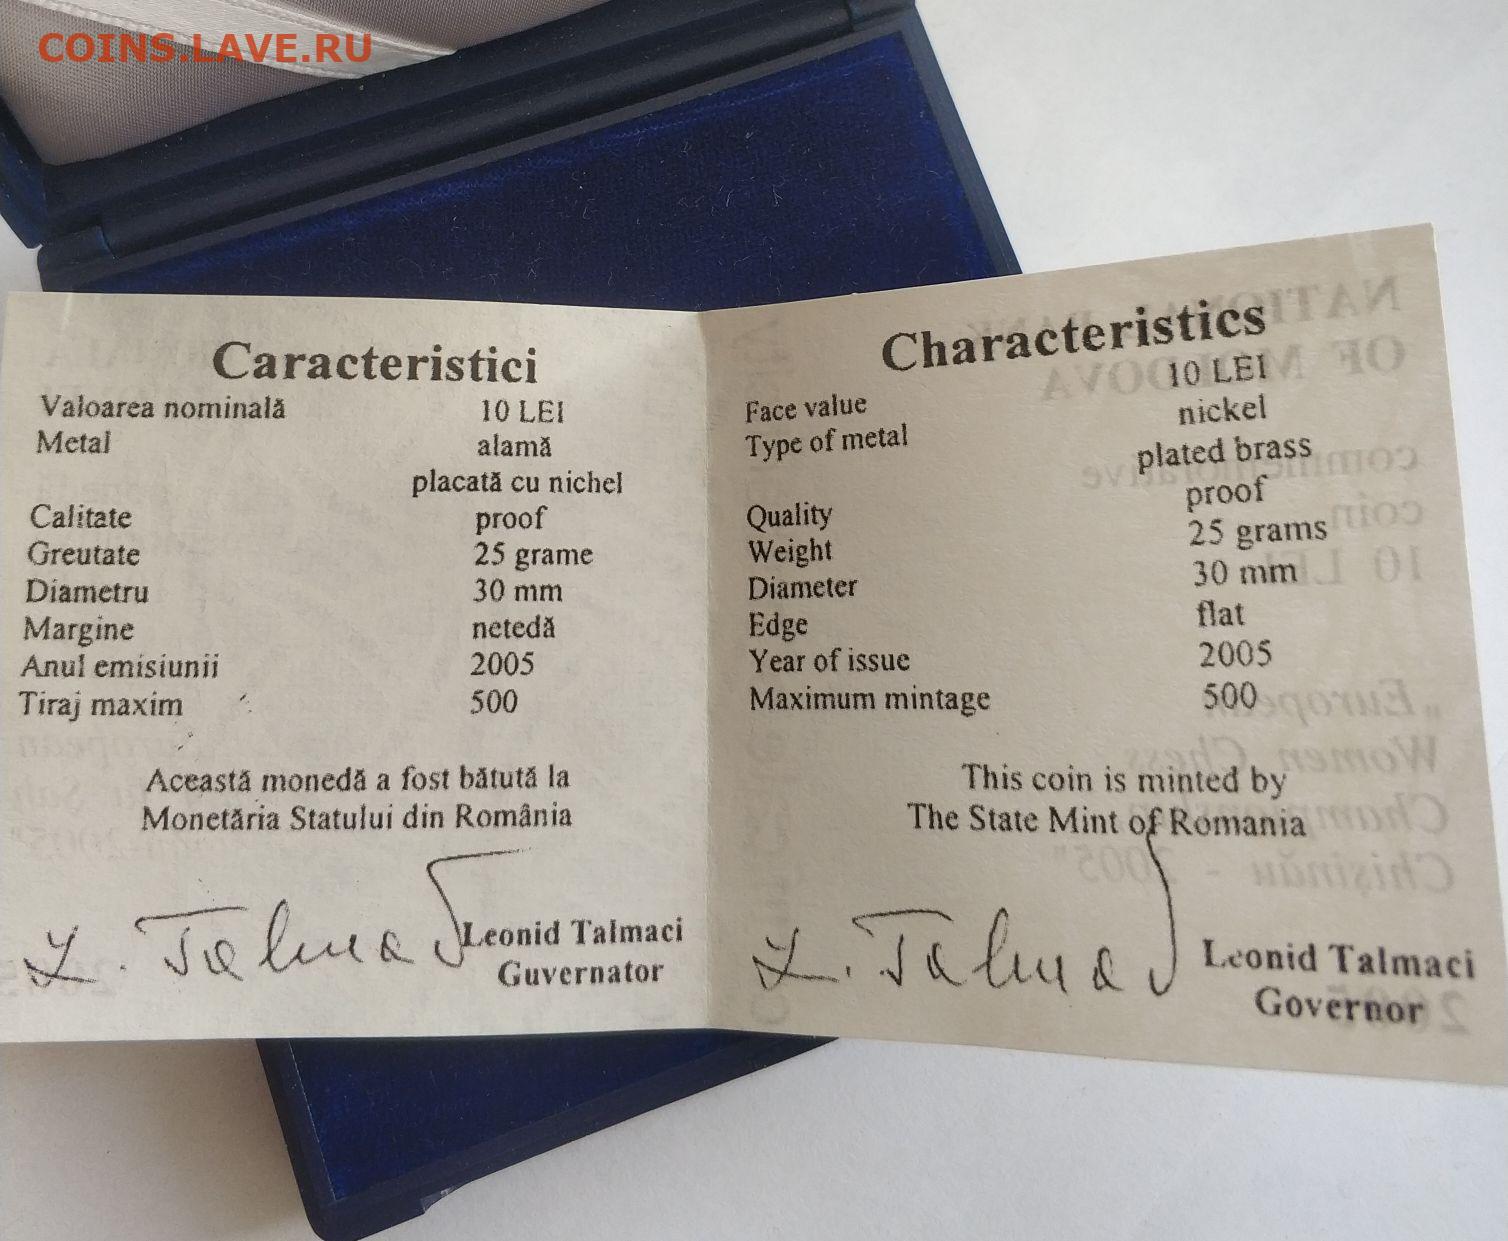 COINS.LAVE.RU
Caracteristici
Valoarea nominală 10 LEI
Metal alamă
placată cu nichel
Calitate proof
Greutate 25 grame
Diametru 30 mm
Margine netedă
Anul emisiunii 2005
Tiraj maxim 500
Această monedă a fost bătută la
Monetăria Statului din România
L. Talmaci
Leonid Talmaci
Guvernator
Characteristics
Face value 10 LEI
Type of metal nickel
plated brass
Quality proof
Weight 25 grams
Diameter 30 mm
Edge flat
Year of issue 2005
Maximum mintage 500
This coin is minted by
The State Mint of Romania
L. Talmaci
Leonid Talmaci
Governor
NATIONAL BANK
OF MOLDOVA
commemorative
coin
10 LEI
„European
Women Chess
Championship
Chişinău - 2005"
2005